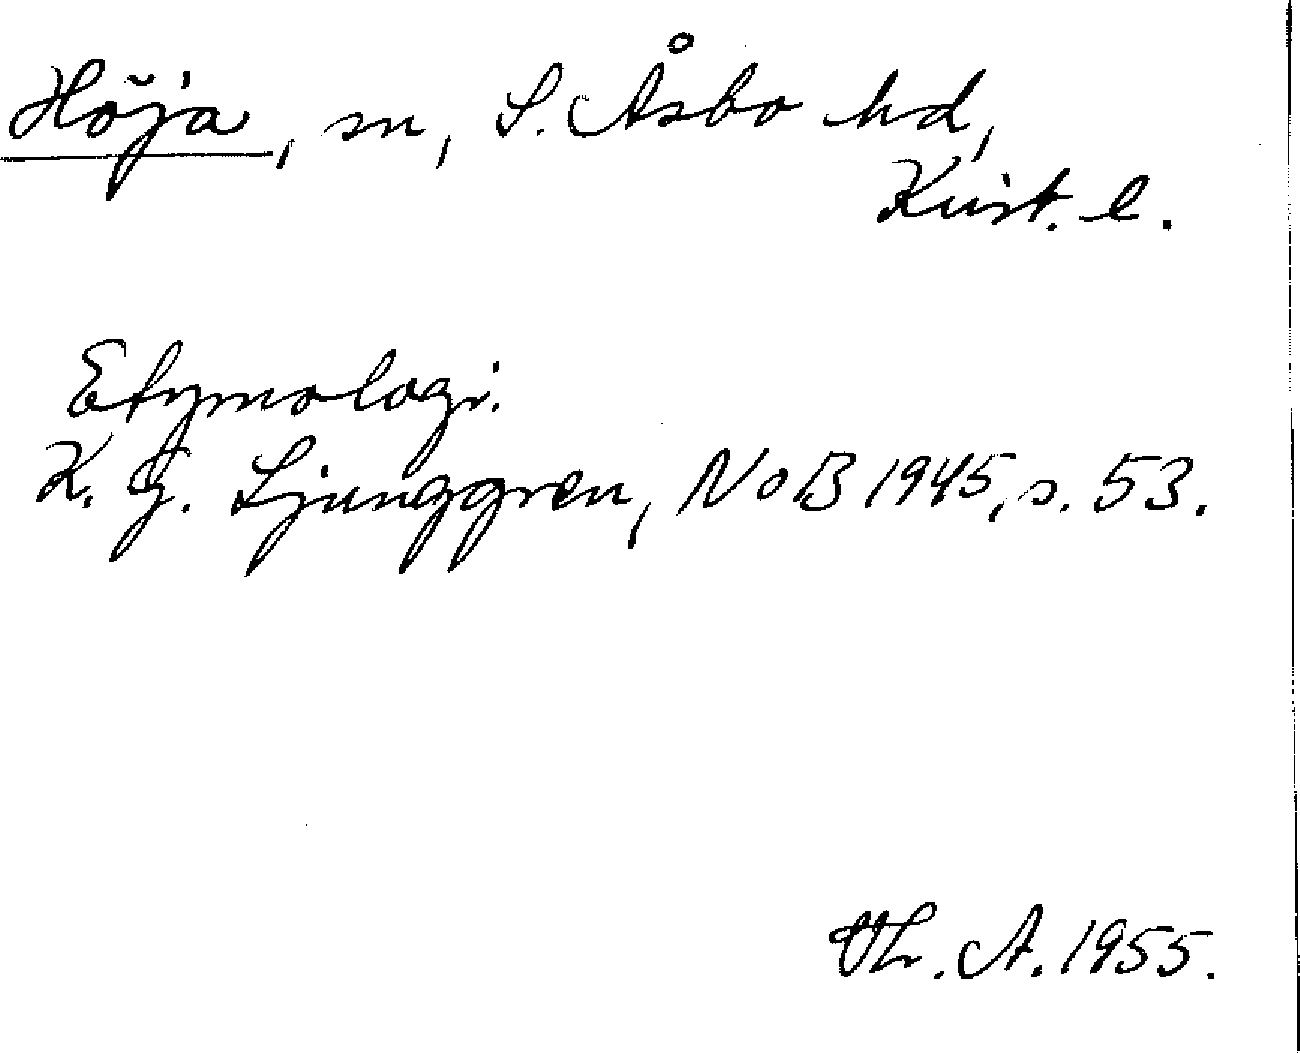 Höja, sn, S. Åsbo hd,
Krist. l.
Etymologi.
K. G. Ljunggren, NoB 1945, s. 53.
A. 1955.